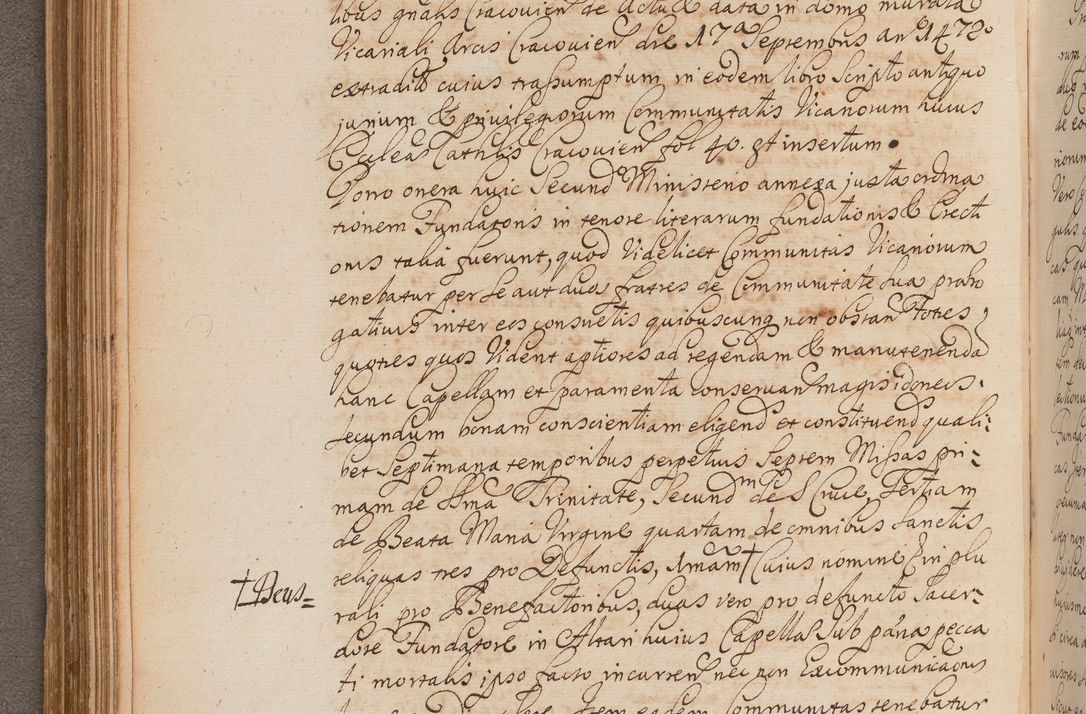 libus gnalis Cracovien de Actu & data in domo murata
Vicariali Arcis Cracovien die 17a Septembris an 1478o
extradito cuius trasumptum in eodem libro Scripto antiquo
jurium & privilegiorum Communitatis Vicariorum huius
Ecclea Cathlis Cracovien fol 40. est insertum.
Porro onera huic Secundo Ministerio annexa juxta ordina
tionem Fundatoris in tenore literarum fundationis & Erecti
onis talia fuerunt, quod Videlicet Communitas Vicariorum
tenebatur per se aut duos fratres de Communitate sua proro
gativis inter eos consvetis quibuscunq non obstan toties,
quoties quos Videnti aptiores ad regendam & manutenenda
hanc Capellam et paramenta conservan magis idoneos.
secundum bonam conscientiam eligend et constituend quali:
bet Septimana temporibus perpetuis Septem Missas pri:
mam de Ssma Trinitate, Secundm de S Cruce, Tertiam
de Beata Maria Virgine quartam de omnibus Sanctis
reliquas tres pro Defunctis, unam † Cuius nomine E in plu
† Deus=
rali pro Benefactoribus, duas vero pro defuncto Sacer:
dote Fundatore in Altari huius Capella Sub pana pecca
ti mortalis ipso facto incurren nec non Excommunicaonis
Item eadem Communitas tenebatur